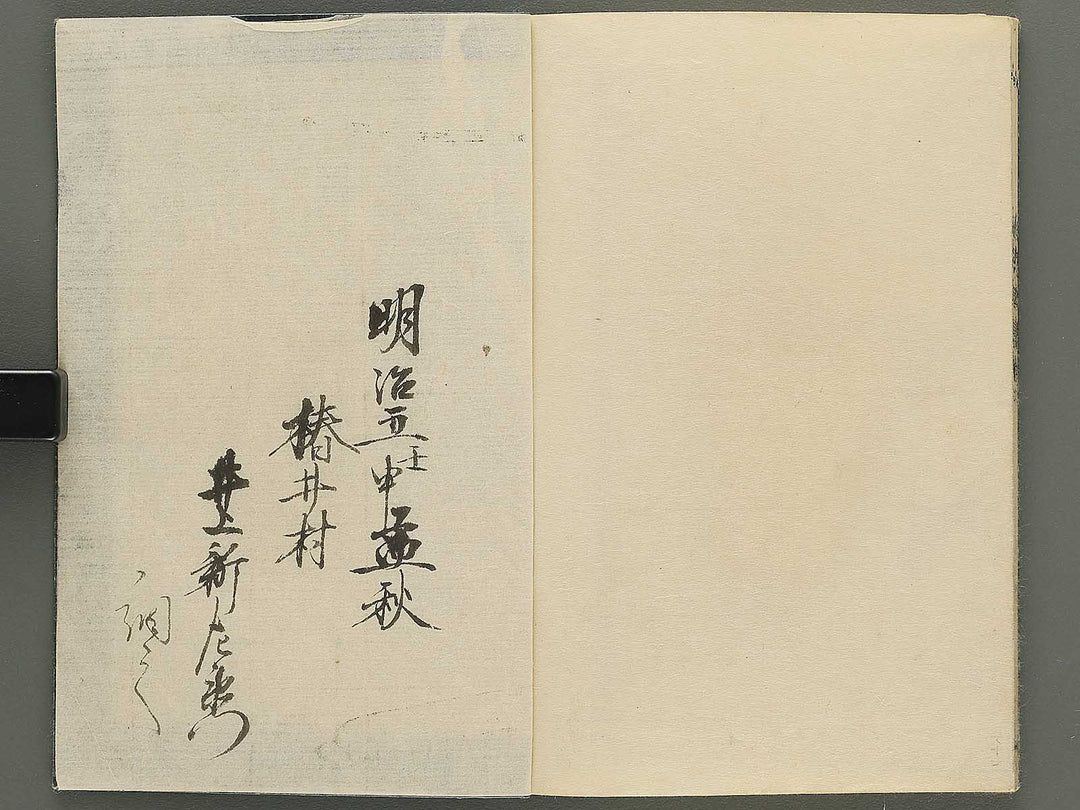 明治五壬申孟秋
椿井村
井上新左衛門